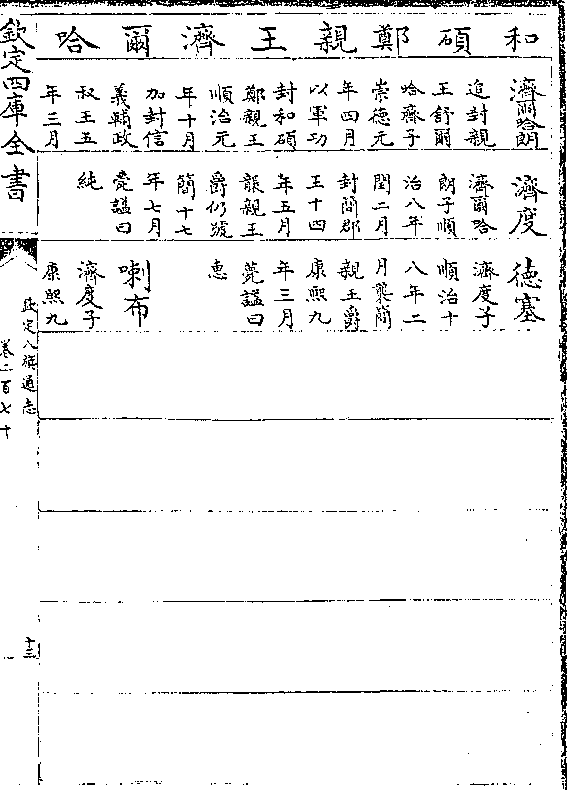 和碩鄭親王濟爾哈
濟爾哈朗
追封親
王舒爾
哈齊子
崇德元
年四月
以軍功
封和碩
鄭親王
順治元
年十月
加封信
義輔政
叔王五
年三月
濟度
濟爾哈
朗子順
治八年
閏二月
封簡郡
王十四
年五月
襲親王
爵仍號
簡十七
年七月
薨諡曰
純
德塞
濟度子
順治十
八年二
月襲簡
親王爵
康熙九
年三月
薨諡曰
惠
喇布
濟度子
康熙九
欽定四庫全書
欽定八旗通志
卷二百七十
十三